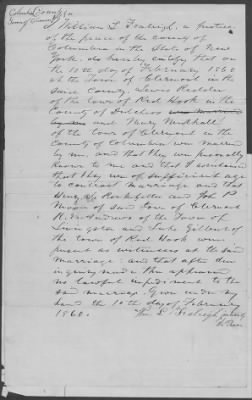 Columbia County ss
Town of Clermont
I William L. Fraleigh, a justice
of the peace of the county of
Columbia in the State of New
York, do hereby certify that on
the 10th day of February 1860
at the Town of Clermont in the
said County, Lewis Redder
of the town of Red Hook in the
County of Dutchess
and Mary Marshall
of the town of Clermont in the
County of Columbia were married
by me, and that they were personally
known to me and that I ascertained
that they were of sufficient age
to contract marriage and that
Henry S. Rockefeller and John C.
Moore of said town of Clermont
R. W. Andrews of the Town of
Livingston and Luke Gilbert of
the town of Red Hook were
present as witnesses at the said
marriage: and that after due
inquiry made there appeared
no lawful impediment to the
said marriage. Given under my
hand the 10th day of February
1860. Wm L. Fraleigh Justice
of the Peace